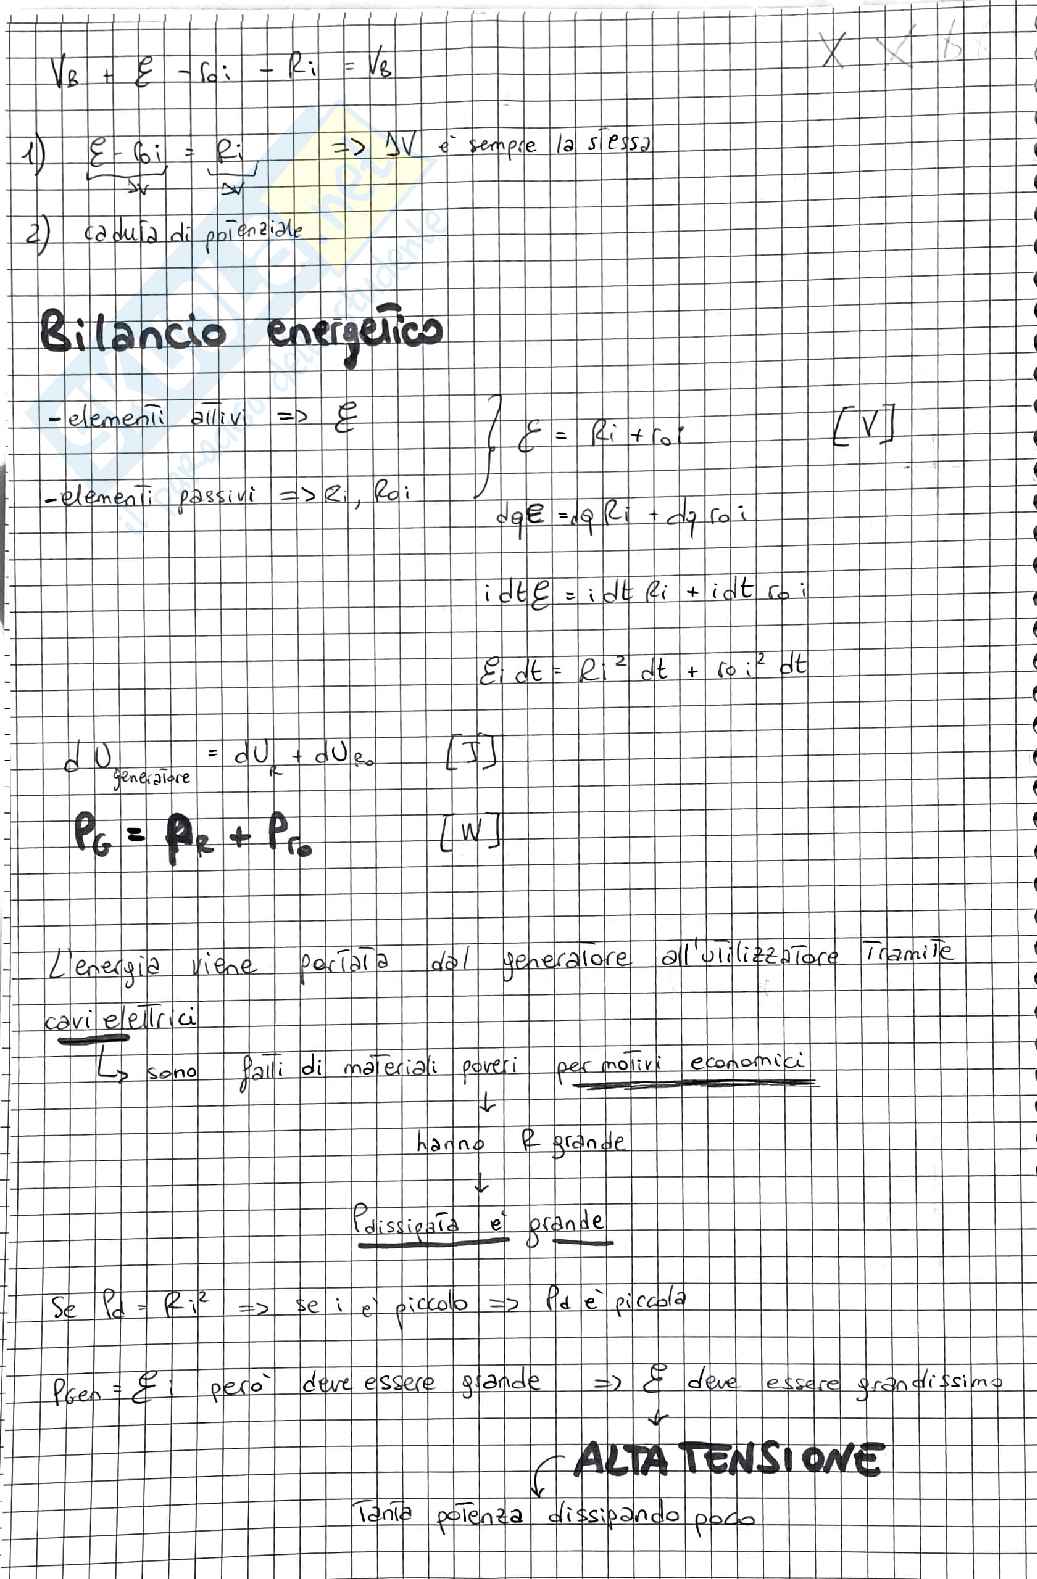 V_B + ℰ - r₀i - Ri = V_B
1) ℰ - r₀i = Ri => ΔV è sempre la stessa
ΔV ΔV
2) caduta di potenziale
Bilancio energetico
- elementi attivi => ℰ
ℰ = Ri + r₀i [V]
- elementi passivi => Ri, R₀i
dqℰ = dq Ri + dq r₀i
i dt ℰ = i dt Ri + i dt r₀ i
ℰi dt = Ri² dt + r₀i² dt
dU_generatore = dU_R + dU_R₀ [J]
P_G = P_R + P_r₀ [W]
L'energia viene portata dal generatore all'utilizzatore tramite
cavi elettrici
↳ sono fatti di materiali poveri per motivi economici
↓
hanno R grande
↓
Pdissipata è grande
Se Pd = Ri² => se i è piccolo => Pd è piccola
PGen = ℰi però deve essere grande => ℰ deve essere grandissimo
↓
ALTA TENSIONE
Tanta potenza dissipando poco